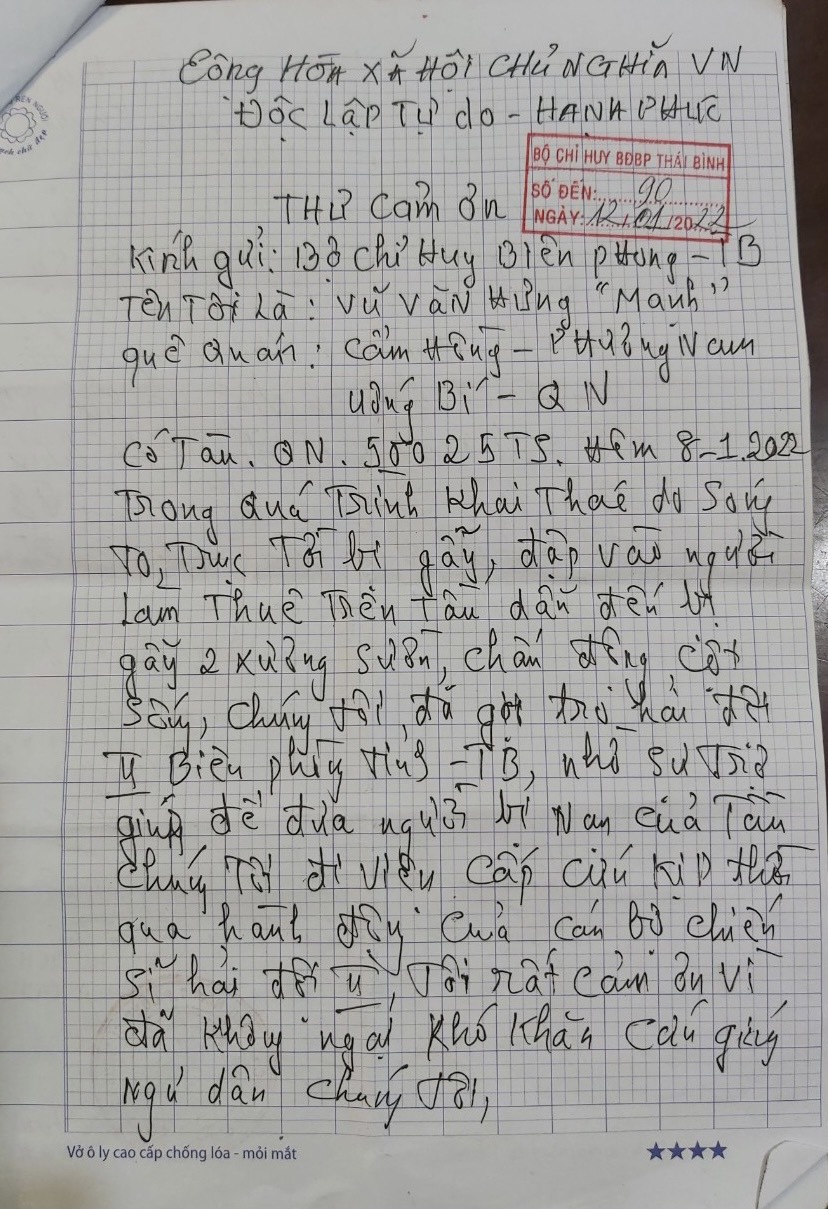 Công HÒA XÃ HỘI CHỦ NGHĨA VN
ĐỘC LẬP TỰ do - HẠNH PHÚC
BỘ CHỈ HUY BĐBP THÁI BÌNH
SỐ ĐẾN: 90
NGÀY: 12/01/2022
THƯ Cảm ơn
Kính gửi: Bộ chỉ Huy Biên phòng - TB
Tên Tôi Là: Vũ VĂN Hưng "Mạnh"
quê quán: Cẩm Hồng - Phương Nam
Uông Bí - QN
Có Tàu. QN. 50025TS. Hôm 8-1.2022
Trong quá Trình khai Thác do Sóng
To, Trục Tời bị gẫy, đập vào người
Làm Thuê Trên Tàu dẫn đến bị
gãy 2 xương sườn, chấn động cột
Sống, Chúng tôi đã gọi trợ hải đội
II Biên phòng tỉnh - TB, nhờ sự trợ
giúp để đưa người bị Nạn của Tàu
Chúng Tôi đi Viện cấp cứu kịp thời
qua hành động của cán bộ chiến
sĩ hải đội II, Tôi rất cảm ơn vì
đã không ngại khó khăn cứu giúp
Ngư dân chúng tôi,
Vở ô ly cao cấp chống lóa - mỏi mắt